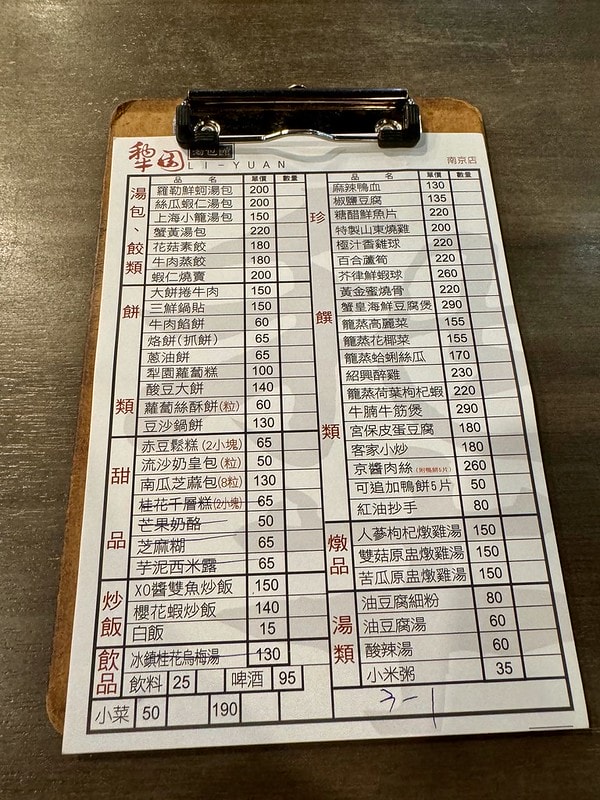 犂园 湯包館
LI-YUAN
南京店
品名 單價 數量
湯包、餃類
羅勒鮮蚵湯包 200
絲瓜蝦仁湯包 200
上海小籠湯包 150
蟹黃湯包 220
花菇素餃 180
牛肉蒸餃 180
蝦仁燒賣 200
餅類
大餅捲牛肉 150
三鮮鍋貼 150
牛肉餡餅 60
烙餅(抓餅) 65
蔥油餅 65
犁園蘿蔔糕 100
酸豆大餅 140
蘿蔔絲酥餅(粒) 60
豆沙鍋餅 130
甜品
赤豆鬆糕(2小塊) 65
流沙奶皇包(粒) 50
南瓜芝麻包(8粒) 130
桂花千層糕(2小塊) 65
芒果奶酪 50
芝麻糊 65
芋泥西米露 65
炒飯
XO醬雙魚炒飯 150
櫻花蝦炒飯 140
白飯 15
飲品
冰鎮桂花烏梅湯 130
飲料 25 啤酒 95
小菜 50 190
品名 單價 數量
珍饌類
麻辣鴨血 130
椒鹽豆腐 135
糖醋鮮魚片 220
特製山東燒雞 200
極汁香雞球 220
百合蘆筍 220
芥律鮮蝦球 260
黃金蜜燒骨 220
蟹皇海鮮豆腐煲 290
籠蒸高麗菜 155
籠蒸花椰菜 155
籠蒸蛤蜊絲瓜 170
紹興醉雞 230
籠蒸荷葉枸杞蝦 220
牛腩牛筋煲 290
宮保皮蛋豆腐 180
客家小炒 180
京醬肉絲(附鴨餅5片) 260
可追加鴨餅5片 50
紅油抄手 80
燉品
人蔘枸杞燉雞湯 150
雙菇原盅燉雞湯 150
苦瓜原盅燉雞湯 150
湯類
油豆腐細粉 80
油豆腐湯 60
酸辣湯 60
小米粥 35
3-1